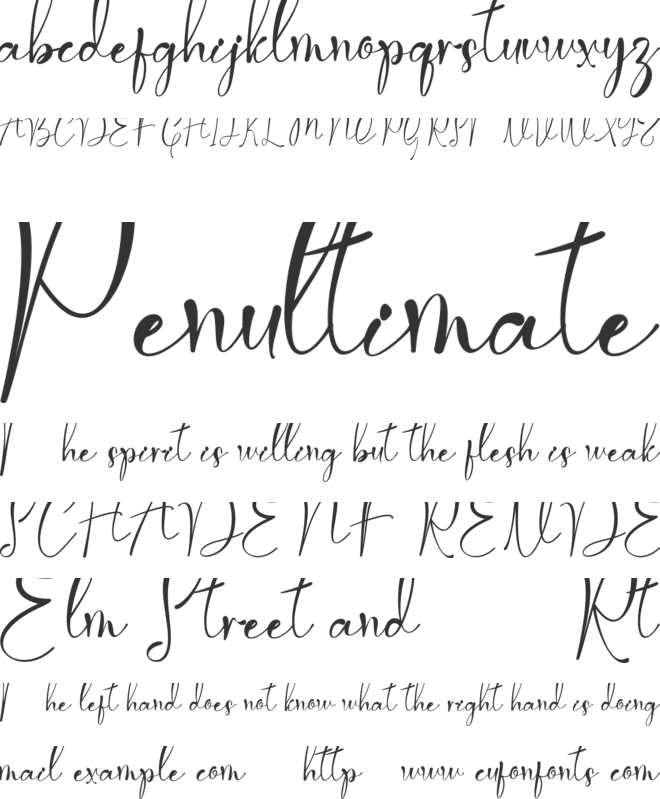 abcdefghijklmnopqrstuvwxyz
ABCDEFGHIJKLMNOPQRST UVWXYZ
Penultimate
The spirit is willing but the flesh is weak
SCHADENF REUDE
Elm Street and Rt
The left hand does not know what the right hand is doing
mail example com http www cufonfonts com